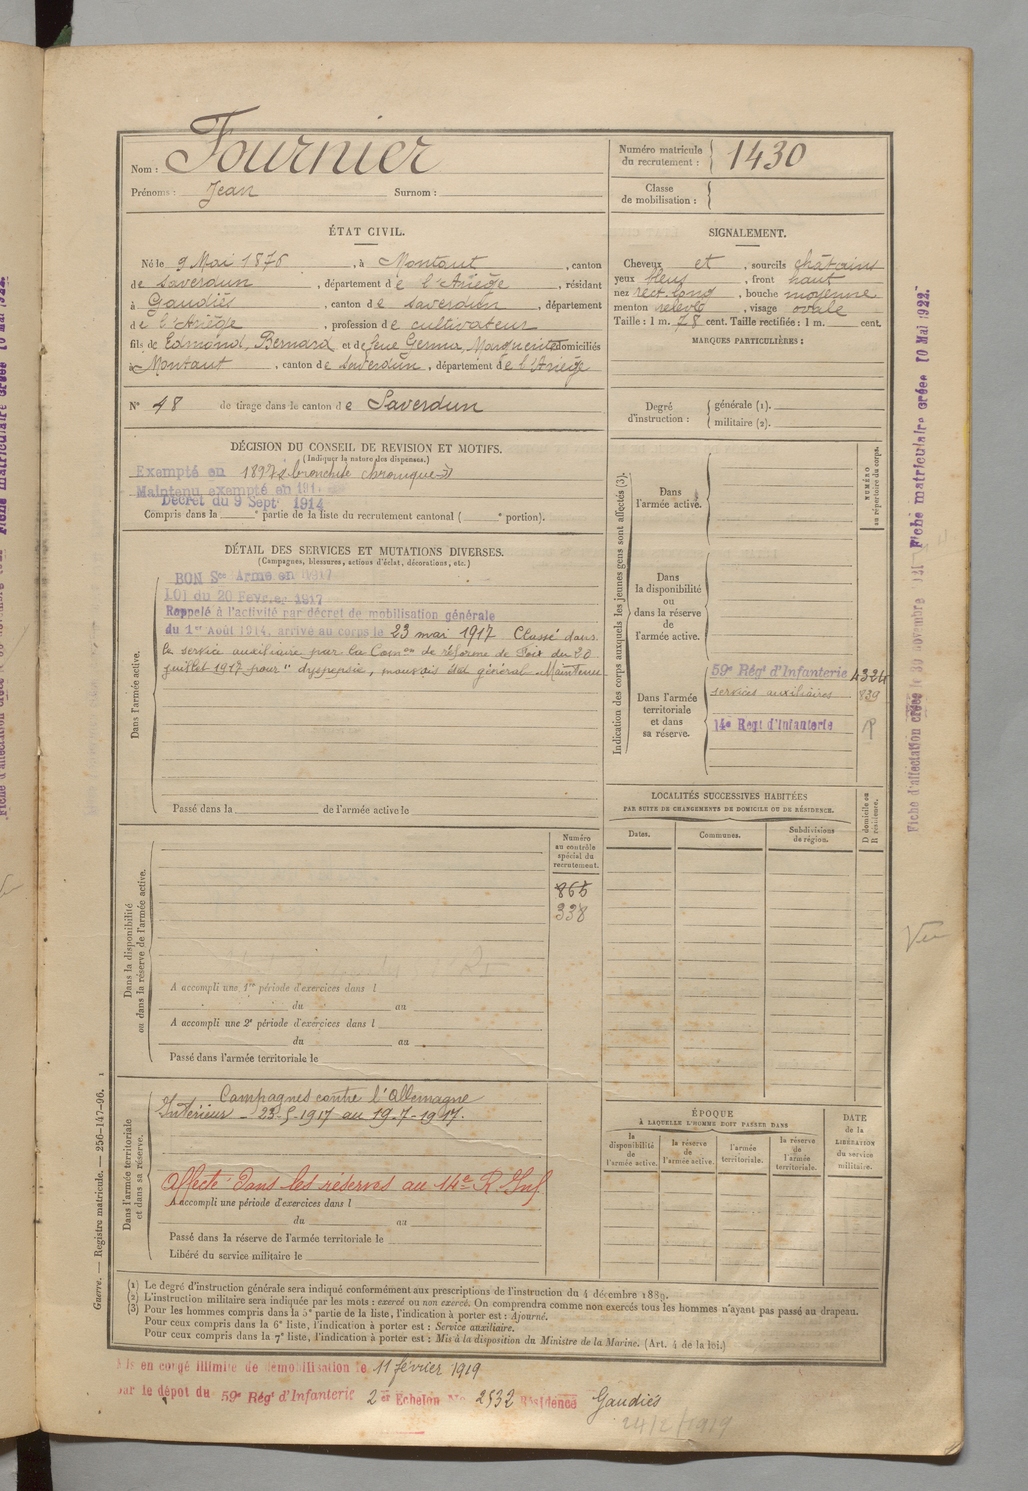 Nom : Fournier
Prénoms : Jean Surnom :
Numéro matricule du recrutement : 1430
Classe de mobilisation :
ÉTAT CIVIL.
Né le 9 Mai 1876, à Montaut, canton
de Saverdun, département de l'Ariège, résidant
à Gaudiès, canton de Saverdun, département
de l'Ariège, profession de cultivateur
fils de Edmond, Bernard et de feue Marguerite domiciliés
à Montaut, canton de Saverdun, département de l'Ariège
N° 48 de tirage dans le canton de Saverdun
SIGNALEMENT.
Cheveux et, sourcils châtains
yeux bleus, front haut
nez rect. long, bouche moyenne
menton relevé, visage ovale
Taille : 1 m. 78 cent. Taille rectifiée : 1 m. cent.
MARQUES PARTICULIÈRES :
Degré d'instruction : générale (1).
militaire (2).
DÉCISION DU CONSEIL DE REVISION ET MOTIFS.
(Indiquer la nature des dispenses.)
Exempté en 1897 bronchite chronique
Maintenu exempté en 191
Décret du 9 Sept 1914
Compris dans la e partie de la liste du recrutement cantonal ( e portion).
DÉTAIL DES SERVICES ET MUTATIONS DIVERSES.
(Campagnes, blessures, actions d'éclat, décorations, etc.)
Dans l'armée active.
BON Sce Armé en 1917
LOI du 20 Février 1917
Rappelé à l'activité par décret de mobilisation générale
du 1er Août 1914. arrivé au corps le 23 mai 1917 Classé dans
le service auxiliaire par la Comon de réforme de Foix du 20
juillet 1917 pour "dyspepsie, mauvais état général Maintenu
Passé dans la de l'armée active le
Indication des corps auxquels les jeunes gens sont affectés (3).
NUMÉRO au répertoire du corps.
Dans l'armée active.
Dans la disponibilité ou dans la réserve de l'armée active.
Dans l'armée territoriale et dans sa réserve.
59e Régt d'Infanterie 4324
services auxiliaires 839
14e Regt d'Infanterie
LOCALITÉS SUCCESSIVES HABITÉES
PAR SUITE DE CHANGEMENTS DE DOMICILE OU DE RÉSIDENCE.
Dates. Communes. Subdivisions de région. D domicile ou R résidence.
Dans la disponibilité ou dans la réserve de l'armée active.
Numéro au contrôle spécial du recrutement.
865
338
A accompli une 1re période d'exercices dans l
du au
A accompli une 2e période d'exercices dans l
du au
Passé dans l'armée territoriale le
Dans l'armée territoriale et dans sa réserve.
Campagnes contre l'Allemagne
Intérieur - 23-5-1917 au 19-7-1917.
Affecté dans les réserves au 14e R. Inf
A accompli une période d'exercices dans l
du au
Passé dans la réserve de l'armée territoriale le
Libéré du service militaire le
ÉPOQUE
À LAQUELLE L'HOMME DOIT PASSER DANS
la disponibilité de l'armée active. la réserve de l'armée active. l'armée territoriale. la réserve de l'armée territoriale.
DATE de la LIBÉRATION du service militaire.
(1) Le degré d'instruction générale sera indiqué conformément aux prescriptions de l'instruction du 4 décembre 1889.
(2) L'instruction militaire sera indiquée par les mots : exercé ou non exercé. On comprendra comme non exercés tous les hommes n'ayant pas passé au drapeau.
(3) Pour les hommes compris dans la 5e partie de la liste, l'indication à porter est : Ajourné.
Pour ceux compris dans la 6e liste, l'indication à porter est : Service auxiliaire.
Pour ceux compris dans la 7e liste, l'indication à porter est : Mis à la disposition du Ministre de la Marine. (Art. 4 de la loi.)
Mis en congé illimité de démobilisation le 11 février 1919
par le dépôt du 59e Régt d'Infanterie 2er Echelon No 2532 Résidence Gaudiès
24/2/1919
Guerre. — Registre matricule. — 256-147-96.
Fiche matriculaire créée 10 Mai 1922.
Fiche d'affectation créée le 30 novembre
Vu